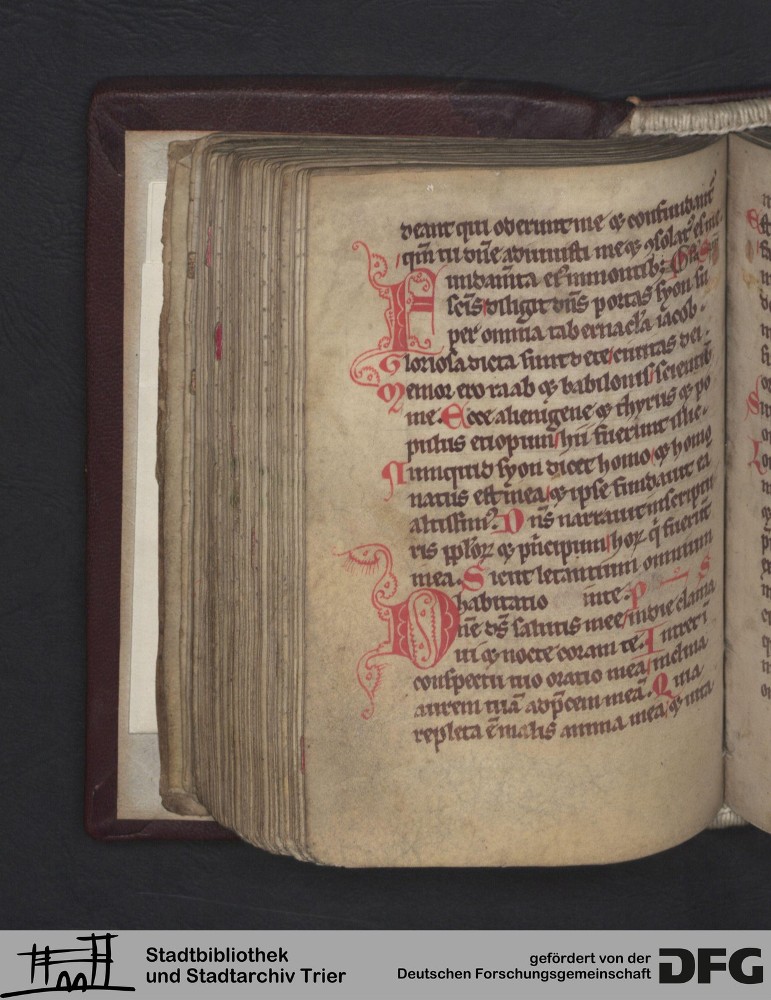 deant qui oderunt me ⁊ confundant͛
qm̄ tu dn̄e adiuuisti me ⁊ ꝯsolat᷒ es me
Fundam̄ta ei᷒ in montib᷒
sc̄is diligit dn̄s portas syon su
per omnia tabernacl̄a iacob.
Gloriosa dicta sunt de te ciuitas dei.
Memor ero raab ⁊ babilonis scientiū
me. Ecce alienigene ⁊ thyrus ⁊ po
pulus etiopum hii fuerunt illic.
Nunquid syon dicet homo ⁊ homo
natus est in ea ⁊ ipse fundauit eā
altissim᷒. Dn̄s narrauit in scriptu
ris pp̄lor̄ ⁊ p̄ncipum hor̄ q̄ fuerūt
in ea. Sicut letantium omnium
habitatio in te. Ps
Dn̄e ds̄ salutis mee in die clama
ui ⁊ nocte coram te. Intret ī
conspectu tuo oratio mea inclina
aurem tuā ad p̄cem meā. Quia
repleta ē malis anima mea ⁊ uita
Stadtbibliothek
und Stadtarchiv Trier
gefördert von der
Deutschen Forschungsgemeinschaft
DFG